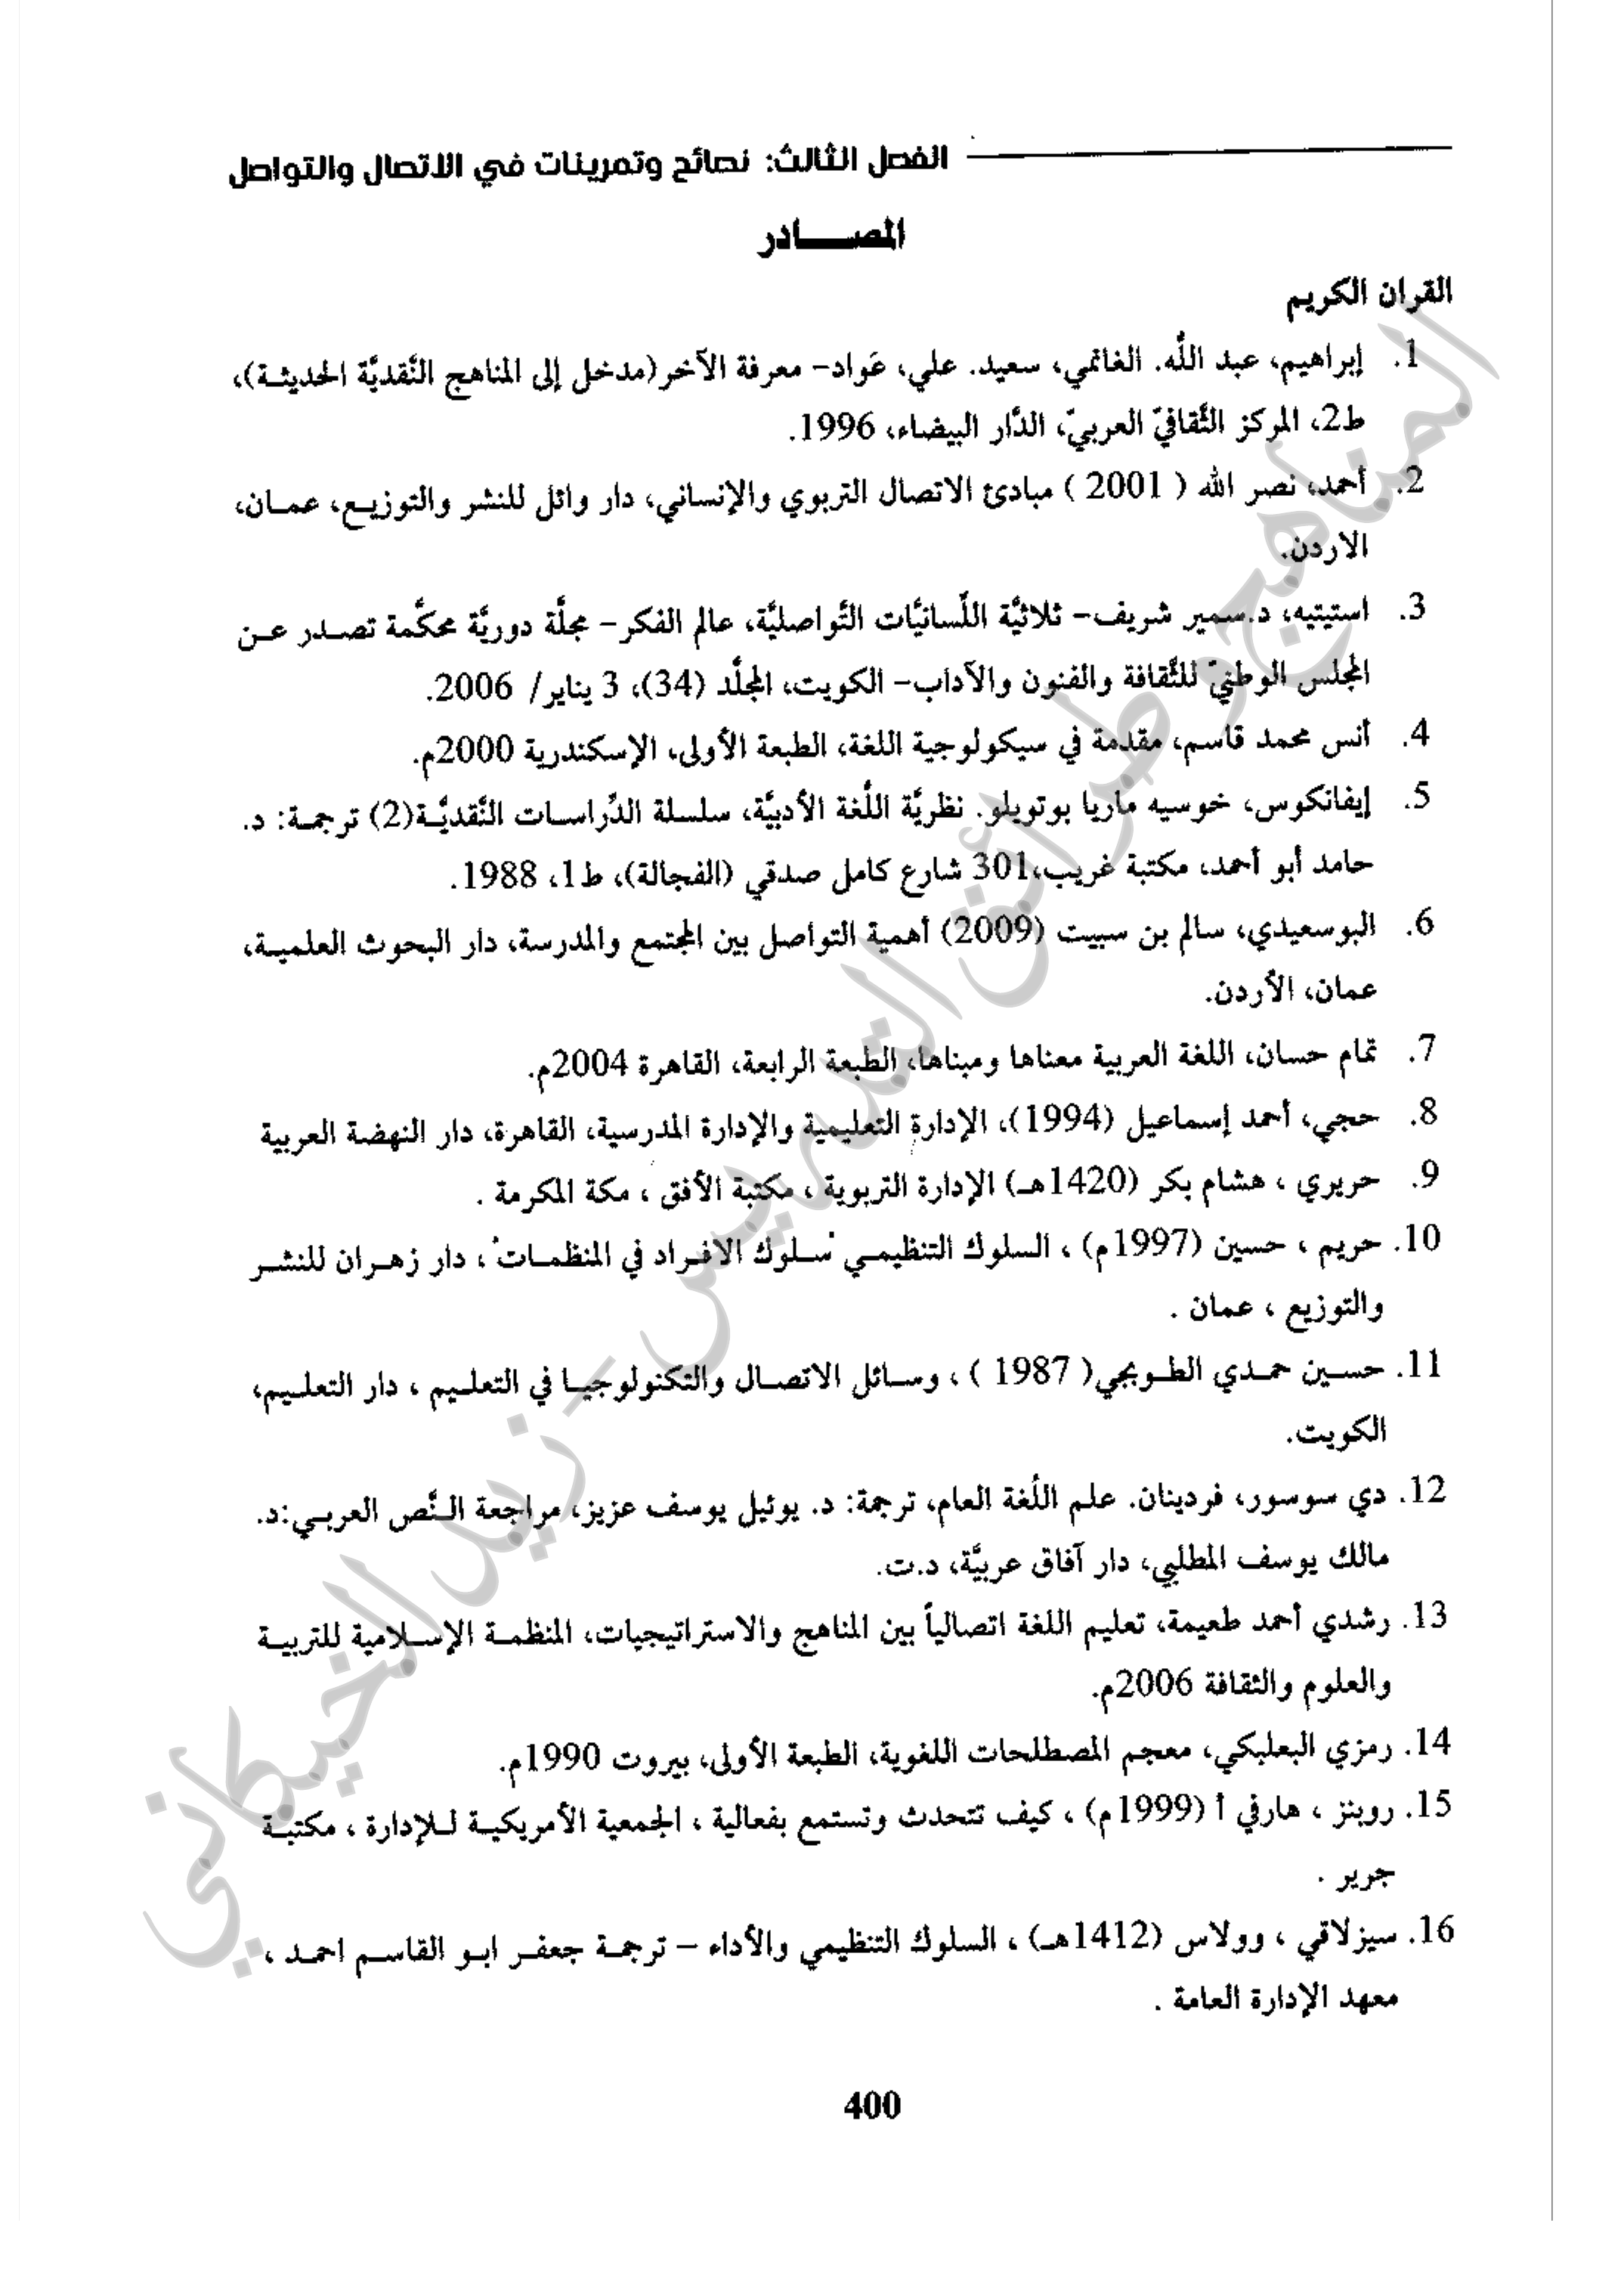 الفصل الثالث: نصائح وتمرينات في الاتصال والتواصل
المصــــادر
القران الكريم
1. إبراهيم، عبد اللَّه. الغانمي، سعيد. علي، عَواد- معرفة الآخر(مدخل إلى المناهج النَّقديَّة الحديثـة)،
ط2، المركز الثَّقافيّ العربيّ، الدَّار البيضاء، 1996.
2. أحمد، نصر الله ( 2001 ) مبادئ الاتصال التربوي والإنساني، دار وائل للنشر والتوزيـع، عمـان،
الاردن.
3. استيتيه، د.سمير شريف- ثلاثيَّة اللِّسانيَّات التَّواصليَّة، عالم الفكر- مجلَّة دوريَّة محكَّمة تصـدر عـن
المجلس الوطنيّ للثَّقافة والفنون والآداب- الكويت، المجلَّد (34)، 3 يناير/ 2006.
4. أنس محمد قاسم، مقدمة في سيكولوجية اللغة، الطبعة الأولى، الإسكندرية 2000م.
5. إيفانكوس، خوسيه ماريا بوتويلو. نظريَّة اللُّغة الأدبيَّة، سلسلة الدِّراسـات النَّقديَّـة(2) ترجمـة: د.
حامد أبو أحمد، مكتبة غريب،301 شارع كامل صدقي (الفجالة)، ط1، 1988.
6. البوسعيدي، سالم بن سبيت (2009) أهمية التواصل بين المجتمع والمدرسة، دار البحوث العلميـة،
عمان، الأردن.
7. تمام حسان، اللغة العربية معناها ومبناها، الطبعة الرابعة، القاهرة 2004م.
8. حجي، أحمد إسماعيل (1994)، الإدارة التعليمية والإدارة المدرسية، القاهرة، دار النهضة العربية
9. حريري ، هشام بكر (1420هـ) الإدارة التربوية ، مكتبة الأفق ، مكة المكرمة .
10. حريم ، حسين (1997م) ، السلوك التنظيمـي "سـلوك الافـراد في المنظمـات" ، دار زهـران للنشـر
والتوزيع ، عمان .
11. حسـين حمـدي الطـوبجي( 1987 ) ، وسـائل الاتصـال والتكنولوجيـا في التعلـيم ، دار التعلـيم،
الكويت.
12. دي سوسور، فردينان. علم اللُّغة العام، ترجمة: د. يوئيل يوسف عزيز، مراجعة الـنَّص العربـي:د.
مالك يوسف المطلبي، دار آفاق عربيَّة، د.ت.
13. رشدي أحمد طعيمة، تعليم اللغة اتصالياً بين المناهج والاستراتيجيات، المنظمـة الإسـلامية للتربيـة
والعلوم والثقافة 2006م.
14. رمزي البعلبكي، معجم المصطلحات اللغوية، الطبعة الأولى، بيروت 1990م.
15. روبنز ، هارفي أ (1999م) ، كيف تتحدث وتستمع بفعالية ، الجمعية الأمريكيـة لـلإدارة ، مكتبـة
جرير .
16. سيزلاقي ، وولاس (1412هـ) ، السلوك التنظيمي والأداء – ترجمـة جعفـر ابـو القاسـم احمـد ،
معهد الإدارة العامة .
400
المناهج وطرائق التدريس - زيد الخيكاني